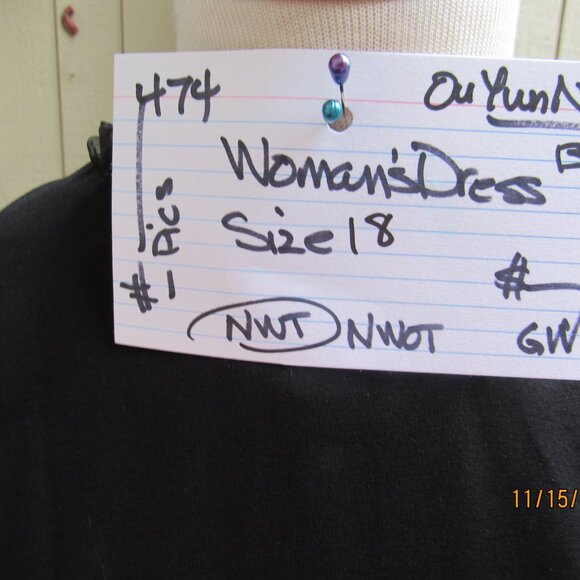 474 OuYunN
Woman's Dress B
Size 18
# — Pics
$
NWT NWOT GW
11/15/